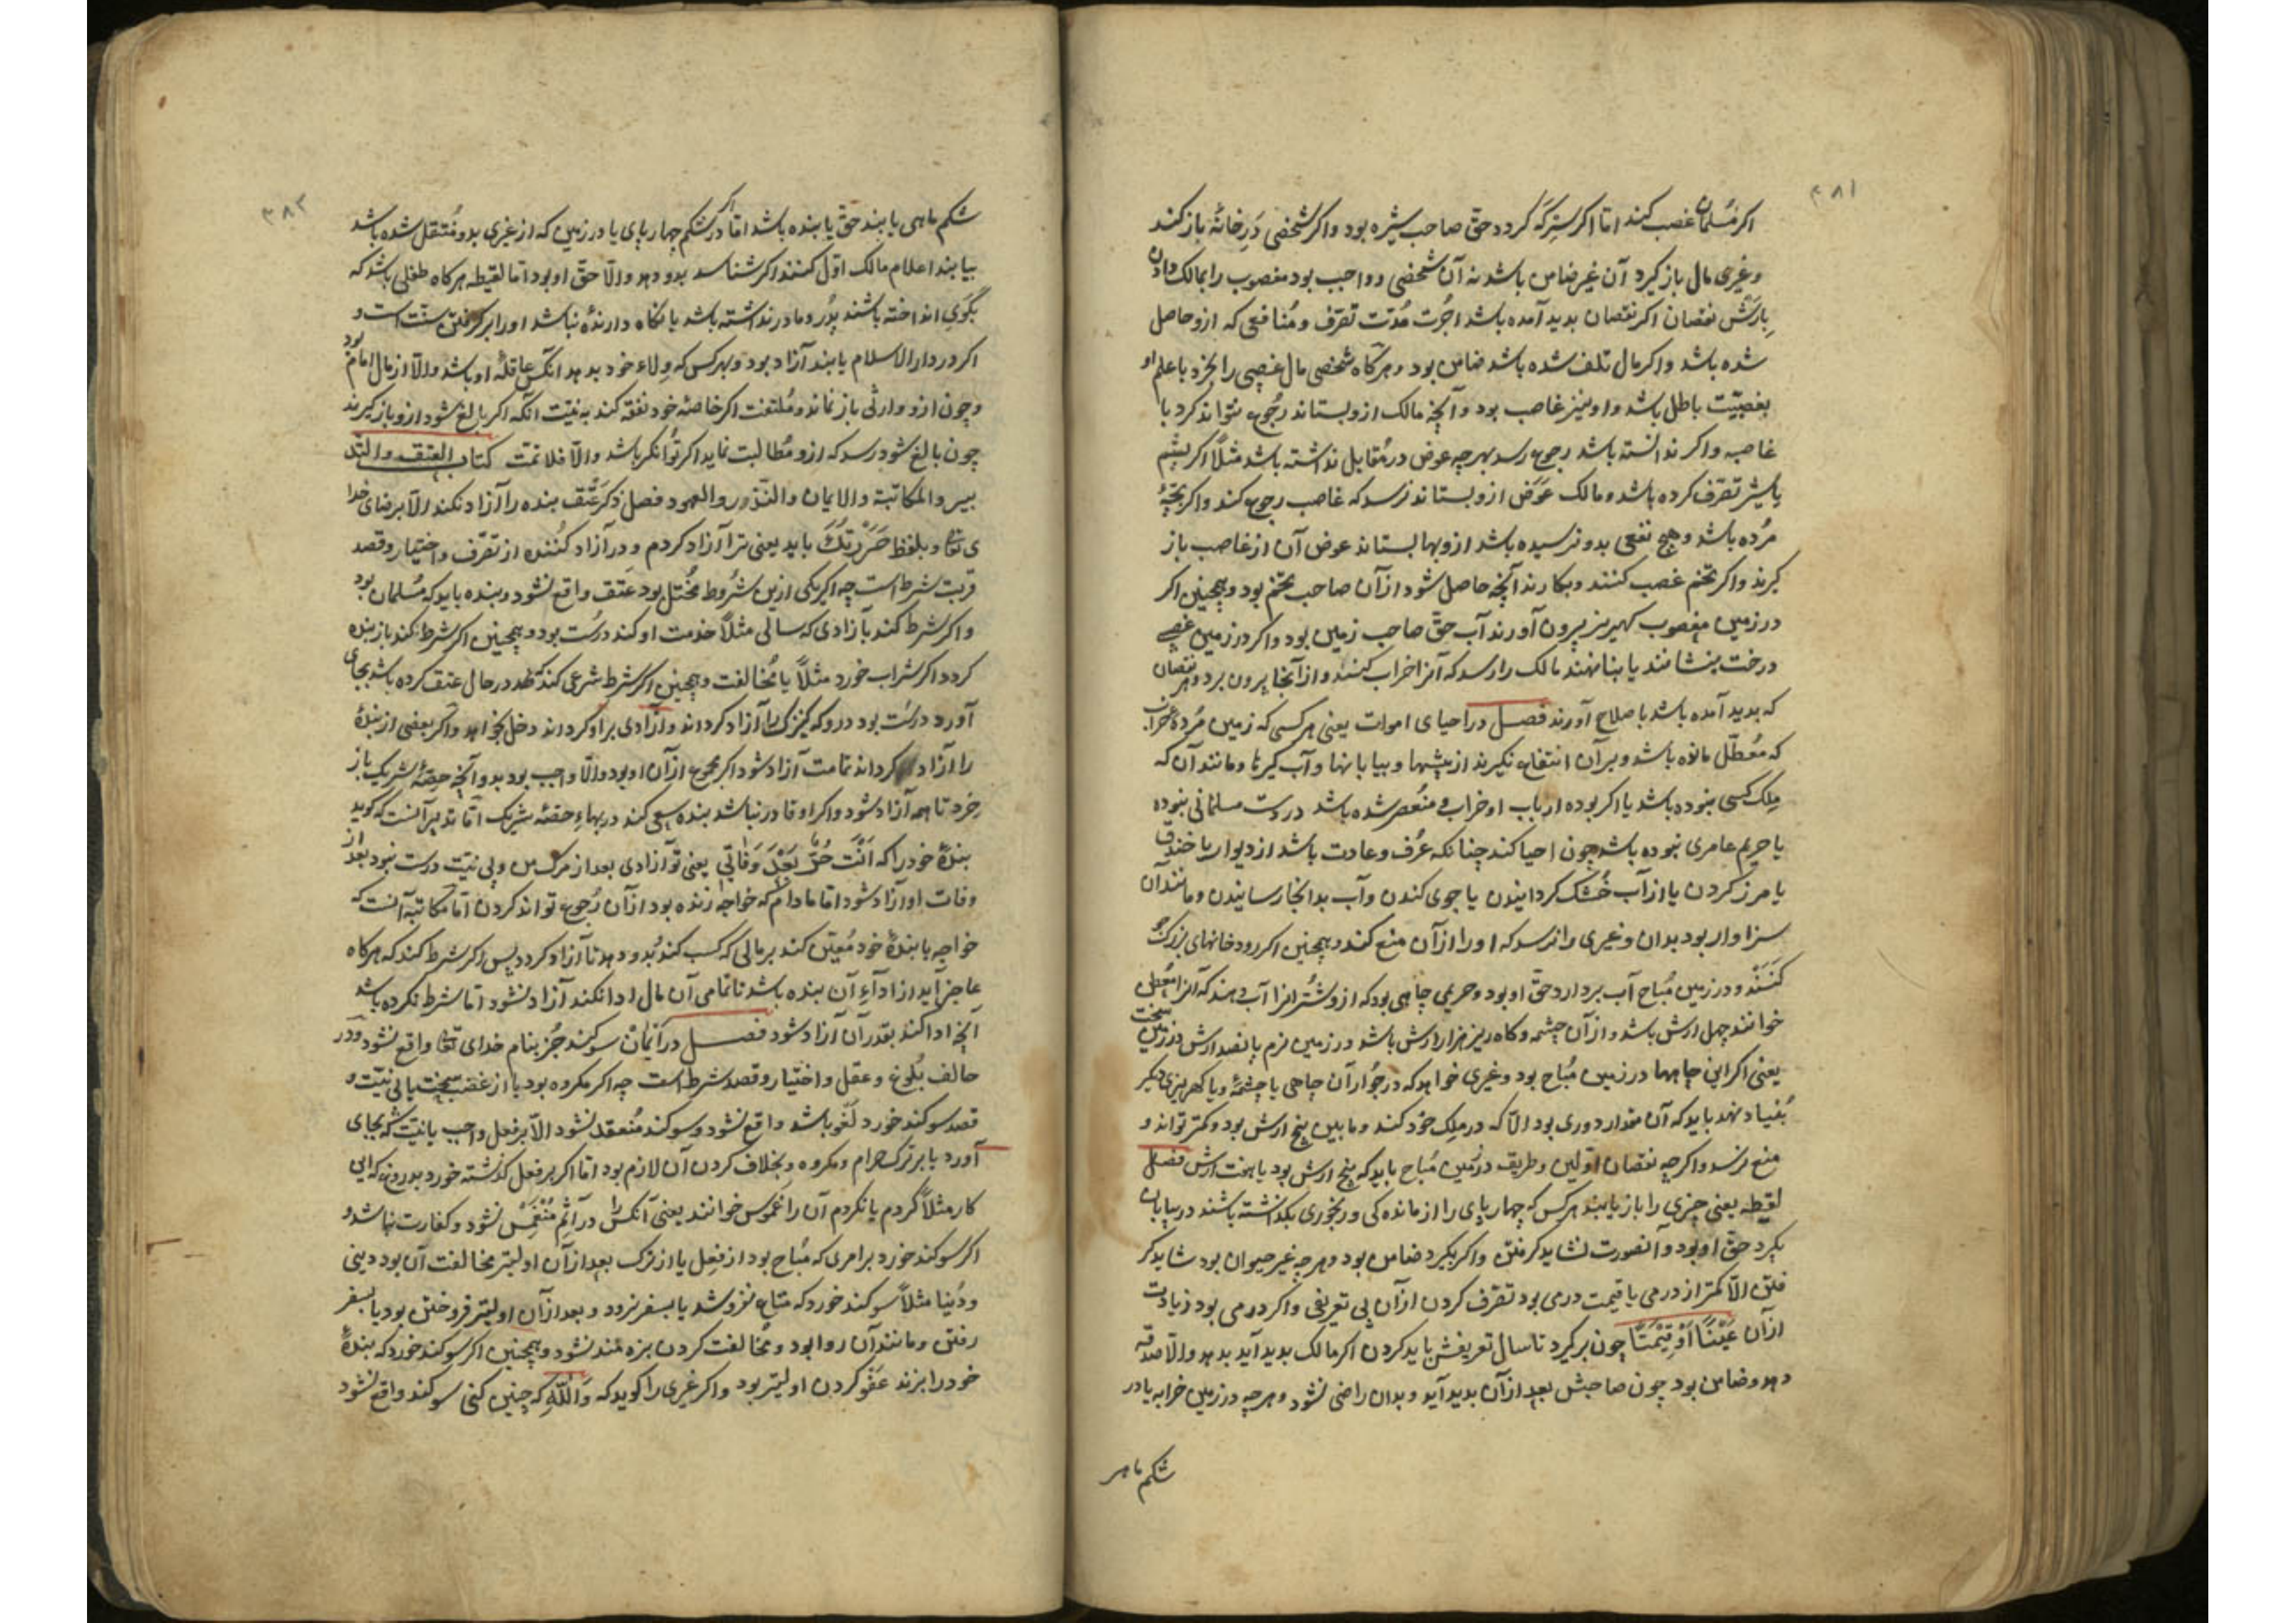 ۳۸۱
اگر مسلمان غصب کند اما اگر سرکه گردد حق صاحب شیره بود و اگر شخصی در خانهٔ باز کند
و غیری مال باز گیرد آن غیر ضامن باشد نه آن شخص و واجب بود مغصوب را بمالک دادن
بارش نقصان اگر نقصان بدید آمده باشد اجرت مدت تصرف و منافعی که ازو حاصل
شده باشد و اگر مال تلف شده باشد ضامن بود و هرگاه شخصی مال غصبی را بخرد با علم او
بغصبیت باطل باشد و او نیز غاصب بود و آنچه مالک ازو بستاند رجوع نتواند کرد با
غاصب و اگر ندانسته باشد رجوع رسد بهرچه عوض در مقابل نداشته باشد مثلاً اگر بشم
یا شیر تصرف کرده باشد و مالک عوض ازو بستاند نرسد که غاصب رجوع کند و اگر بچهٔ
مرده باشد و هیچ نفعی بدو نرسیده باشد ازو بها بستاند عوض آن از غاصب باز
گیرند و اگر تخم غصب کنند و بکارند آنچه حاصل شود از آن صاحب تخم بود و همچنین اگر
در زمین مغصوب کهریز بیرون آورند آب حق صاحب زمین بود و اگر در زمین غصبی
درخت بنشانند یا بنا نهند مالک را رسد که آنرا خراب کنند و از آنجا بیرون برد و هر نقصان
که بدید آمده باشد باصلاح آورند فصل در احیای اموات یعنی هر کسی که زمین مردهٔ خراب
که معطل مانده باشد و بر آن انتفاع نگیرند از بیشها و بیابانها و آب گیرها و مانند آن که
ملک کسی نبوده باشد یا اگر بوده ارباب او خراب و منقصر شده باشد در دست مسلمانی نبوده
یا حریم عامری نبوده باشد چون احیا کند چنانکه عرف و عادت باشد از دیوار یا خندق
یا مرز کردن یا از آب خشک گردانیدن یا جوی کندن و آب بدانجا رسانیدن و مانند آن
سزاوار بود بدان و غیری را نرسد که او را از آن منع کند و همچنین اگر رودخانهای بزرگ
کنند و در زمین مباح آب بردارد حق او بود و حریم چاهی بود که ازو شتر انرا آب دهند که آنرا معطن
خوانند چهل ارش باشد و از آن چشمه و کاه ریز هزار ارش باشد در زمین نرم پانصد ارش در زمین سخت
یعنی اگر این چاهها در زمین مباح بود و غیری خواهد که در جوار آن چاهی یا چشمهٔ و یا کهریزی دیگر
بنیاد نهد باید که آن مقدار دوری بود الا که در ملک خود کند و مابین پنج ارش بود و کمتر تواند و
منع نرسد و اگرچه نقصان اولین و طریق در زمین مباح باید که پنج ارش بود یا هفت ارش فصل
لقیطه یعنی چیزی را باز یابند هر کس که چهارپای را از مانده کی و رنجوری بگذاشته باشند در بیابان
بگیرد حق او بود و آنصورت نشاید گرفتن و اگر بگیرد ضامن بود و هرچه غیر حیوان بود شاید گر
فتن الا کمتر از درمی یا قیمت درمی بود تصرف کردن از آن بی تعریفی و اگر درمی بود زیادت
از آن عیناً او قیمتاً چون برگیرد تا سال تعریفش باید کردن اگر مالک بدید آید بدهد والا صدقه
دهد و ضامن بود چون صاحبش بعد از آن بدید آید و بدان راضی نشود و هرچه در زمین خرابه یا در
شکم ماهی
۳۸۲
شکم ماهی یابند حق یابنده باشد اما اگر در شکم چهارپای یا در زمین که از غیری بدو منتقل شده باشد
بیابند اعلام مالک اول کنند اگر شناسد بدو دهد والا حق او بود اما لقیطه هرگاه طفلی باشد که
بگوی انداخته باشند پدر و مادر نداشته باشد یا نگاه دارندهٔ نباشد او را برگرفتن سنت است و
اگر در دار الاسلام یابند آزاد بود و بهر کس که ولاء خود بدهد آنکس عاقلهٔ او باشد والا از مال امام بود
و چون ازو وارثی باز نماند و ملتقت اگر خاصه خود نفقه کند به نیت آنکه اگر بالغ شود ازو باز گیرند
چون بالغ شود رسد که ازو مطالبت نماید اگر توانگر باشد والا فلا تمت کتاب العتق والتد
بیر والمکاتبة والایمان والنذور والعهود فصل ذکر عتق بنده را آزاد نکند الا برضای خدا
ی تعالی و بلفظ حررتک باید یعنی ترا آزاد کردم و در آزاد کننده از تصرف و اختیار و قصد
قربت شرط است چه اگر یکی ازین شروط مختل بود عتق واقع نشود و بنده باید که مسلمان بود
و اگر شرط کند بآزادی که سالی مثلاً خدمت او کند درست بود و همچنین اگر شرط کند باز بنده
گردد اگر شراب خورد مثلاً یا مخالفت و همچنین اگر شرط شرعی کند که در حال عتق کرده باشد بجای
آورد درست بود در وکه کنیزک را آزاد گرداند و آزادی بر او گرداند دخل نخواهد و اگر بعضی از بندهٔ
را آزاد گرداند تمامت آزاد شود اگر مجموع از آن او بود والا واجب بود بدو آنچه حصهٔ شریک باز
خرد تا همه آزاد شود و اگر او قادر نباشد بنده سعی کند در بهاء حصهٔ شریک اما تدبیر آنست که گوید
بندهٔ خود را که انت حر بعد وفاتی یعنی تو آزادی بعد از مرگ من و بی نیت درست نبود بعد از
وفات او آزاد شود اما مادام که خواجه زنده بود از آن رجوع تواند کردن اما مکاتبه آنست که
خواجه با بندهٔ خود معین کند بر مالی که کسب کند بدو دهد تا آزاد گردد پس اگر شرط کند که هرگاه
عاجز آید از اداء آن بنده باشد تا تمامی آن مال ادا نکند آزاد نشود اما شرط نکرده باشد
آنچه ادا کند بقدر آن آزاد شود فصل در ایمان سوگند جز بنام خدای تعالی واقع نشود و در
حالف بلوغ و عقل و اختیار و قصد شرط است چه اگر مکروه بود یا از غضب سخت یا بی نیت و
قصد سوگند خورد لغو باشد واقع نشود و سوگند منعقد نشود الا بر فعل واجب یا نیت که بجای
آورد یا بر ترک حرام و مکروه و بخلاف کردن آن لازم بود اما اگر بر فعل گذشته خورد بدروغ که این
کار مثلاً کردم یا نکردم آن را غموس خوانند یعنی آنکس را در آثم منغمس شود و کفارت نباشد و
اگر سوگند خورد بر امری که مباح بود از فعل یا از ترک بعد از آن اولیتر مخالفت آن بود دینی
و دنیا مثلاً سوگند خورد که متاع نفروشد یا بسفر نرود و بعد از آن اولیتر فروختن بود یا بسفر
رفتن و مانند آن روا بود و مخالفت کردن بزه مند نشود و همچنین اگر سوگند خورد که بندهٔ
خود را بزند عفو کردن اولیتر بود و اگر غیری را گوید که والله که چنین کنی سوگند واقع نشود